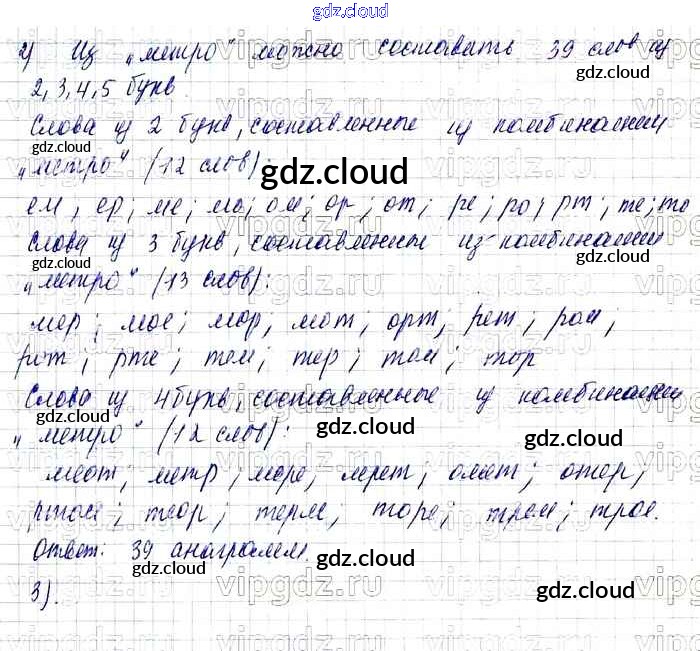 gdz.cloud
2) Из „метро" можно составить 39 слов из
gdz.cloud
2, 3, 4, 5 букв.
Слова из 2 букв, составленные из комбинации
gdz.cloud
„метро" (12 слов):
gdz.cloud
ем, ер; ме; мо; ом; ор; от; ре; ро; рт; те; то
Слова из 3 букв, составленные из комбинации
gdz.cloud
„метро" (13 слов):
мер; мое; мор; мот; орт; рет; ром;
рот; рте; тем; тер; том; тор
Слова из 4 букв, составленные из комбинации
gdz.cloud
„метро" (12 слов):
gdz.cloud gdz.cloud
меот; метр; море; мрет; омет; отер;
ртом; теор; терм; торе; трем; трое.
Ответ: 39 анаграмм.
gdz.cloud
3).
gdz.cloud gdz.cloud